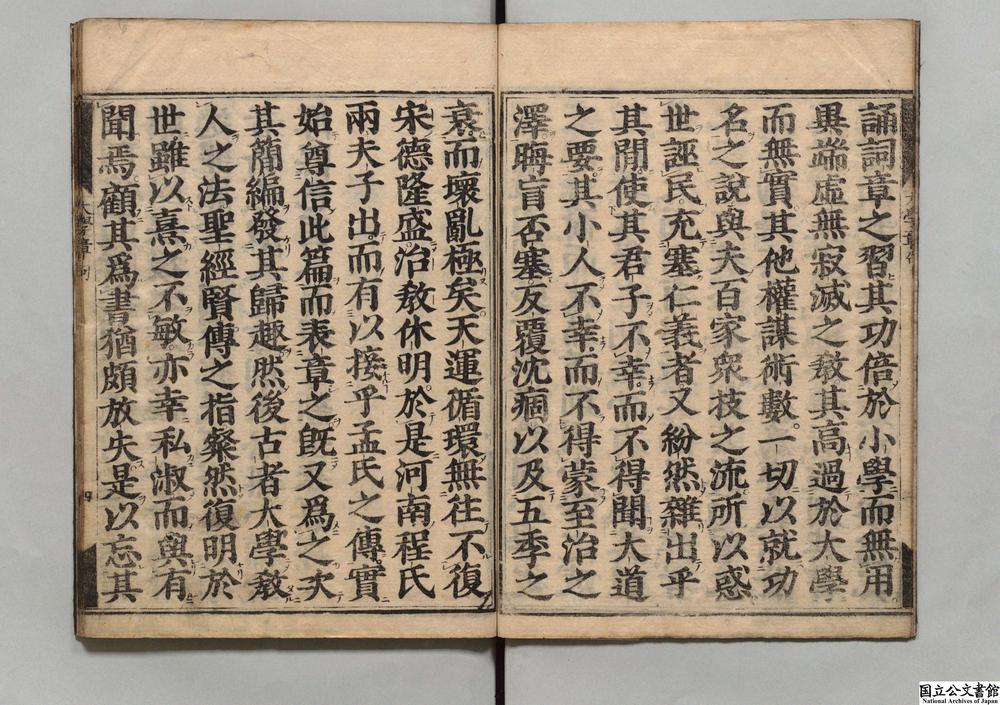 誦詞章之習其功倍於小學而無用
異端虛無寂滅之敎其高過於大學
而無實其他權謀術數一切以就功
名之說與夫百家衆技之流所以惑
世誣民充塞仁義者又紛然雜出乎
其閒使其君子不幸而不得聞大道
之要其小人不幸而不得蒙至治之
澤晦盲否塞反覆沈痼以及五季之
衰而壞亂極矣天運循環無往不復
宋德隆盛治敎休明於是河南程氏
兩夫子出而有以接乎孟氏之傳實
始尊信此篇而表章之旣又爲之次
其簡編發其歸趣然後古者大學敎
人之法聖經賢傳之指粲然復明於
世雖以熹之不敏亦幸私淑而與有
聞焉顧其爲書猶頗放失是以忘其
四
国立公文書館
National Archives of Japan